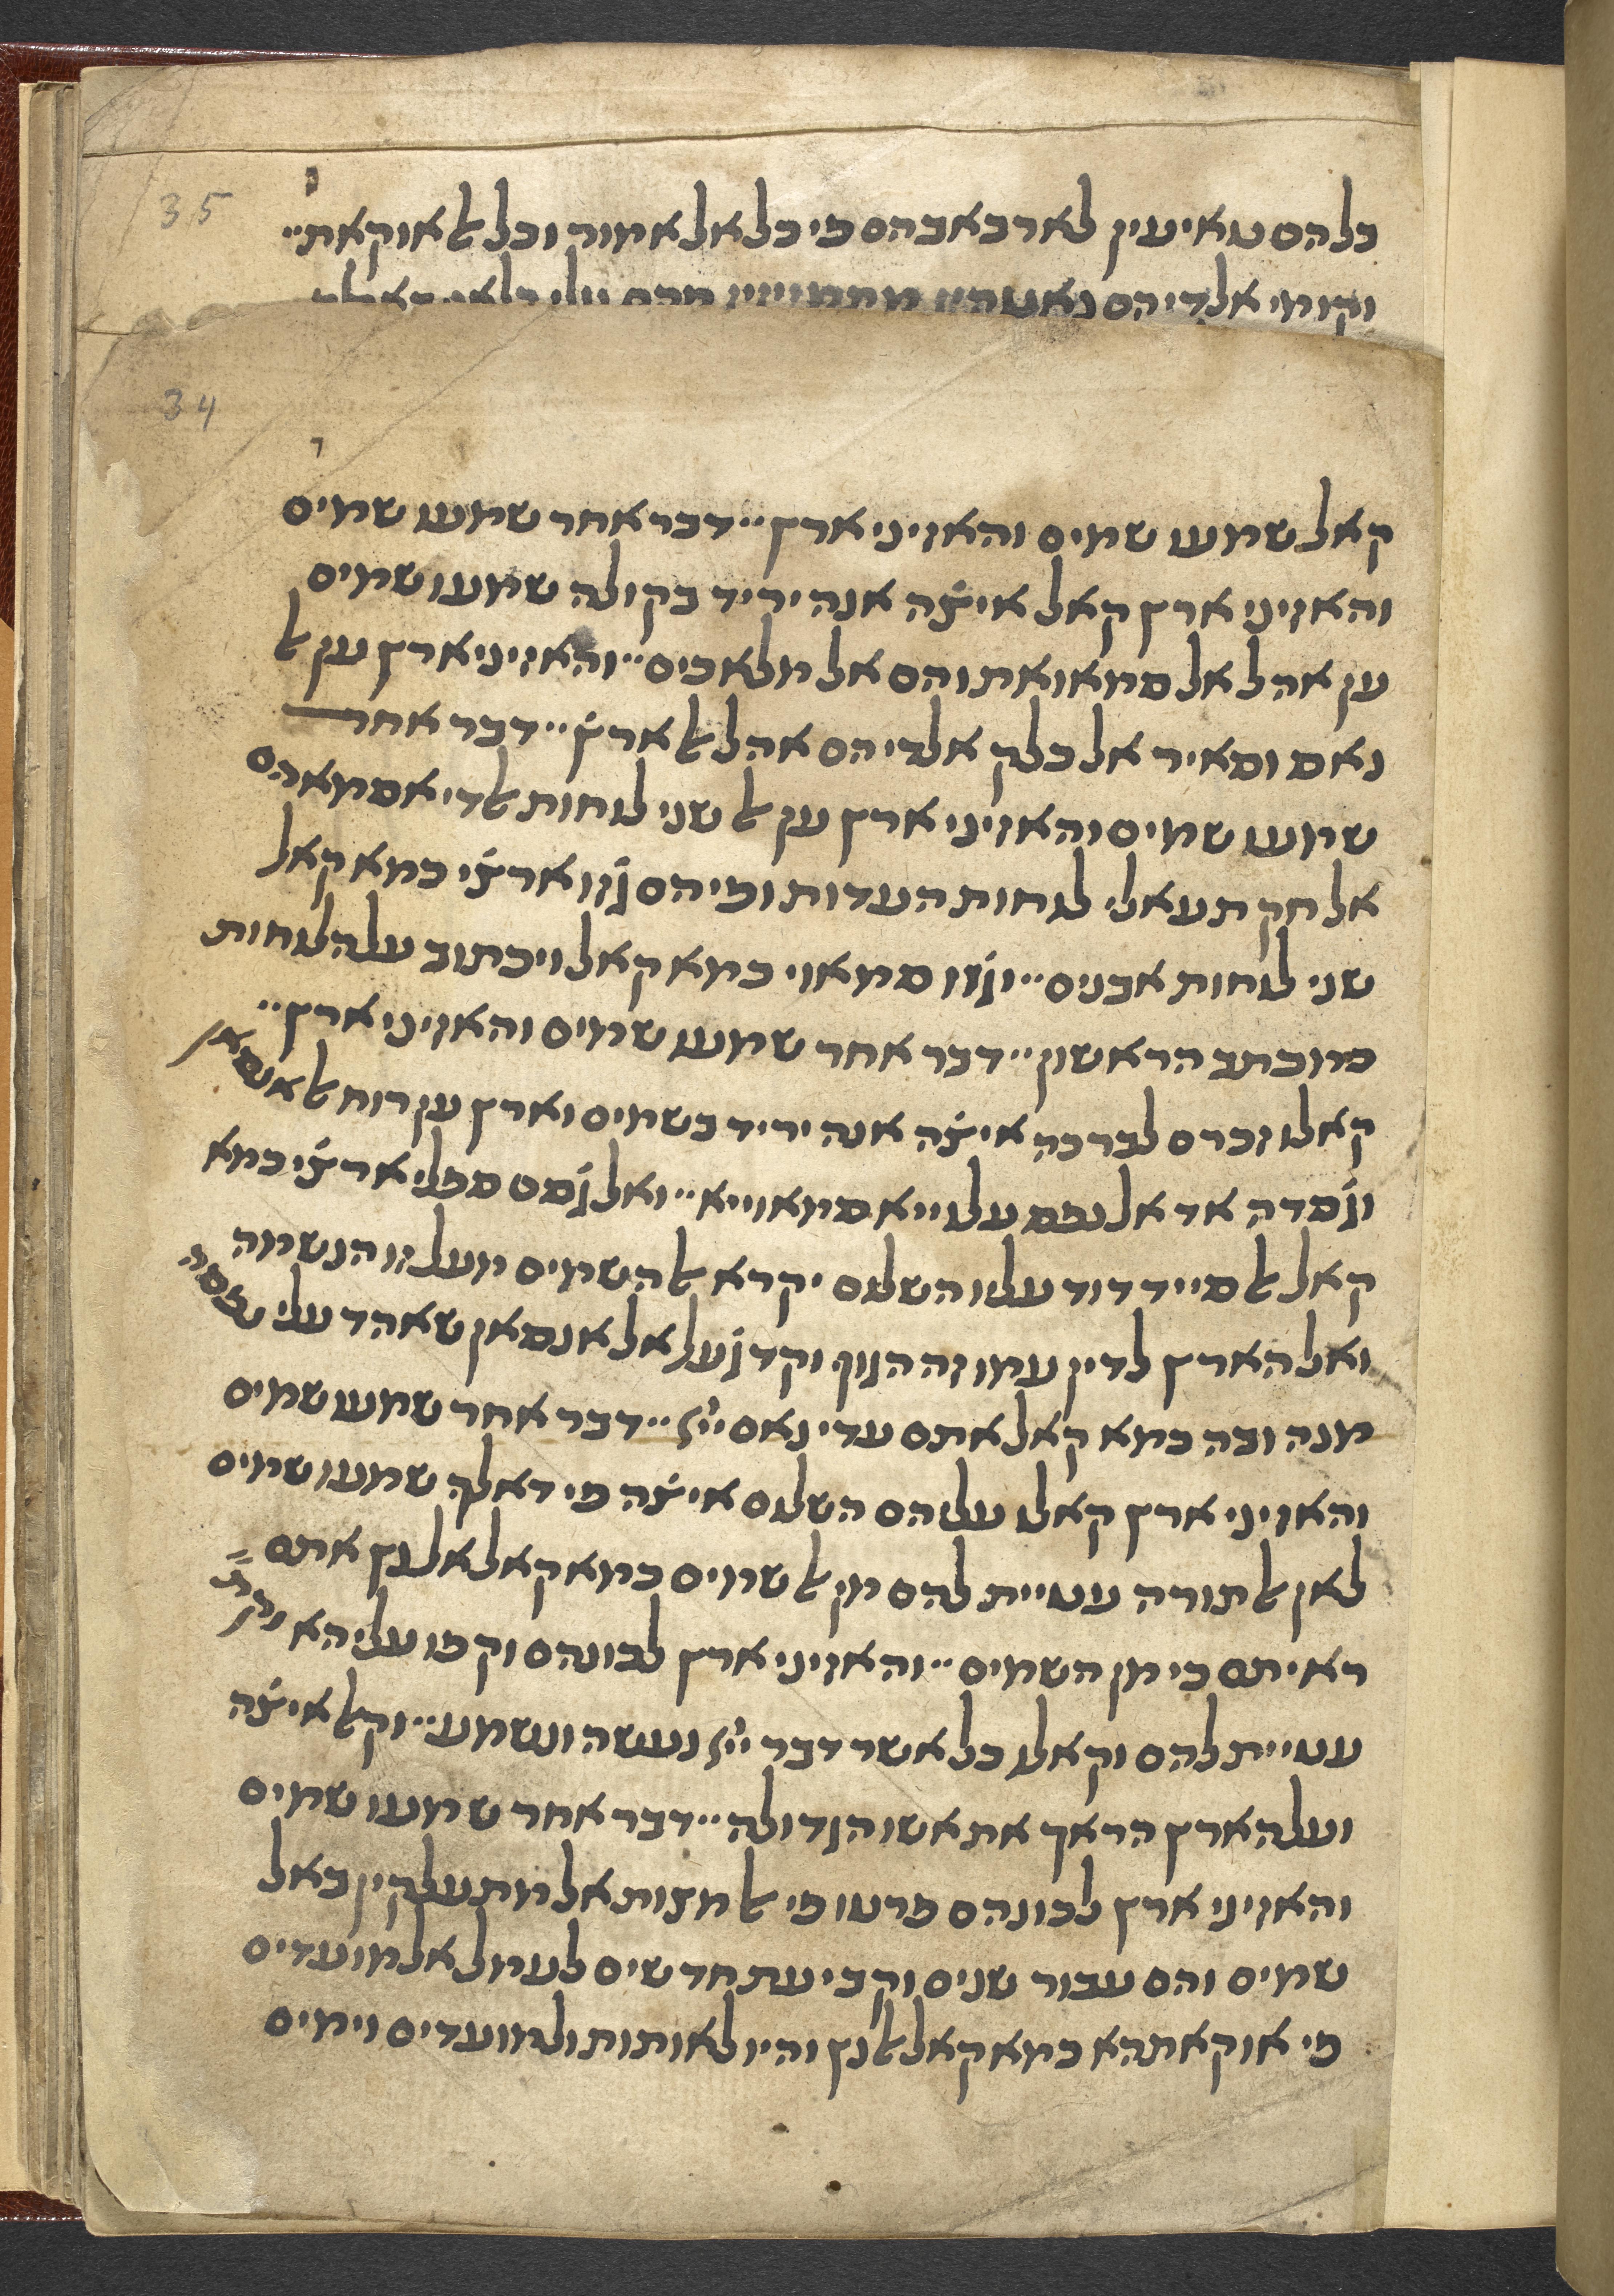 35
כלהם טאיעין לארבאבהם פי כל אל אמור וכל ﭏ אוקאת״
וקומי אלדי הם
34
קאל שמעו שמים והאזיני ארץ״ דבר אחר שמעו שמים
והאזיני ארץ קאל איצ̇ה אנה יריד בקולה שמעו שמים
ען אהל אל סמאואת והם אל מלאכים״ והאזיני ארץ ען ﭏ
נאס וסאיר אל כלק אלדי הם אהל ﭏ ארץ̇״ דבר אחר
שמעו שמים והאזיני ארץ ען ﭏ שני לוחות ﭏדי אסמאהם
אל חק תעאלי לוחות העדות ופיהם ג̇זו ארצ̇י כמא קאל
שני לוחות אבנים״ וג̇זו סמאוי כמא קאל ויכתוב על הלוחות
כמכתב הראשון״ דבר אחר שמעו שמים והאזיני ארץ״
קאלו זכרם לברכה איצ̇ה אנה יריד בשמים וארץ ען רוח ﭏ אנסאן
וג̇סדה אד אל נפס עלוייא סמאוייא״ ואל ג̇סם ספלי ארצ̇י כמא
קאל ﭏ סייד דוד עליו השלום יקרא אל השמים מעל זו הנשמה
ואל הארץ לדין עמו זה הגוף וקד ג̇על אל אנסאן שאהד עלי נפסה
מנה ובה כמא קאל אתם עדי נאם ייי״ דבר אחר שמעו שמים
והאזיני ארץ קאלו עליהם השלום איצ̇ה פי דאלך שמעו שמים
לאן ﭏ תורה עטיית להם מן ﭏ שמים כמא קאל אל נץ אתם
ראיתם כי מן השמים״ והאזיני ארץ לכונהם וקפו עליהא
עטיית להם וקאלו כל אשר דבר ייי נעשה ונשמע״ וקﭏ איצ̇ה
ועל הארץ הראך את אשו הגדולה״ דבר אחר שמעו שמים
והאזיני ארץ לכונהם פרטו פי ﭏ מצות אל מתעלקין באל
שמים והם עבור שנים וקביעת חדשים לעמל אל מועדים
פי אוקאתהא כמא קאל ﭏ נץ והיו לאותות ולמועדים וימים